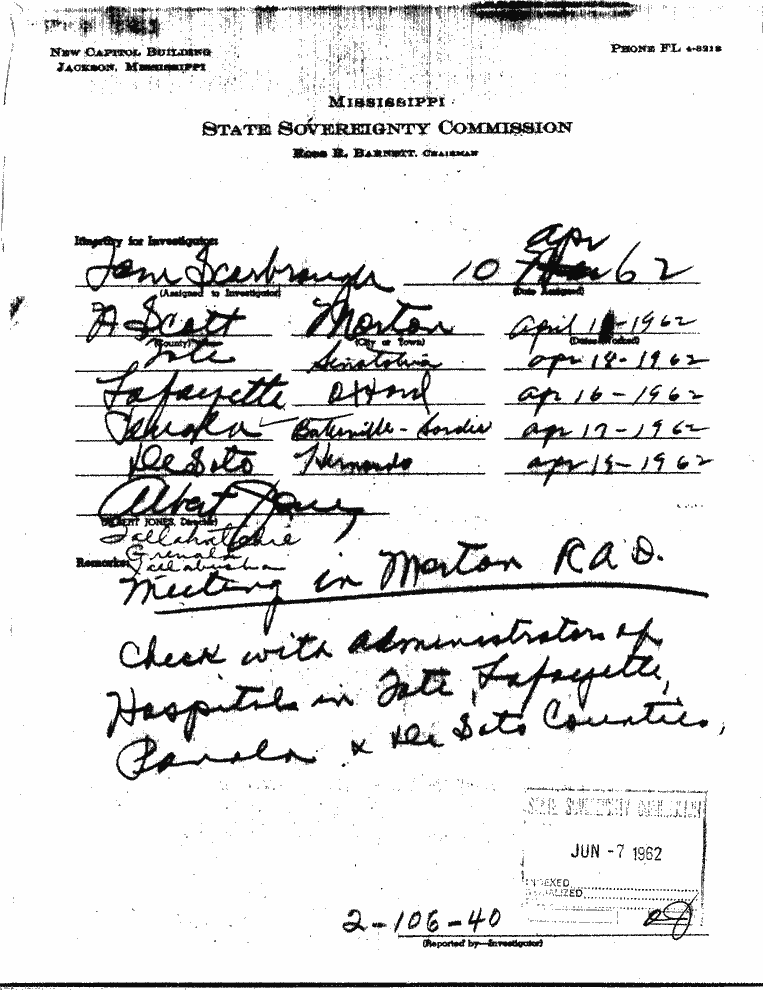 NEW CAPITOL BUILDING
JACKSON, MISSISSIPPI
PHONE FL 4-8218
MISSISSIPPI
STATE SOVEREIGNTY COMMISSION
ROSS R. BARNETT, CHAIRMAN
Itinerary for Investigator:
Tom Scarbrough 10 Apr 62
(Assigned to Investigator) (Date Assigned)
Scott Morton April 1 -1962
(County) (City or Town) (Dates Worked)
Tate Senatobia apr 14-1962
Lafayette Oxford apr 16-1962
Panola Batesville-Sardis apr 17-1962
De Soto Hernando apr 19-1962
Albert Jones
(ALBERT JONES, Director)
Tallahatchie
Grenada
Yallabusha
Remarks:
Meeting in Morton R.A.D.
Check with administrators of
Hospitals in Tate, Lafayette,
Panola & De Soto Counties,
STATE SOVEREIGNTY COMMISSION
JUN -7 1962
INDEXED
SERIALIZED
2-106-40
(Reported by—Investigator)